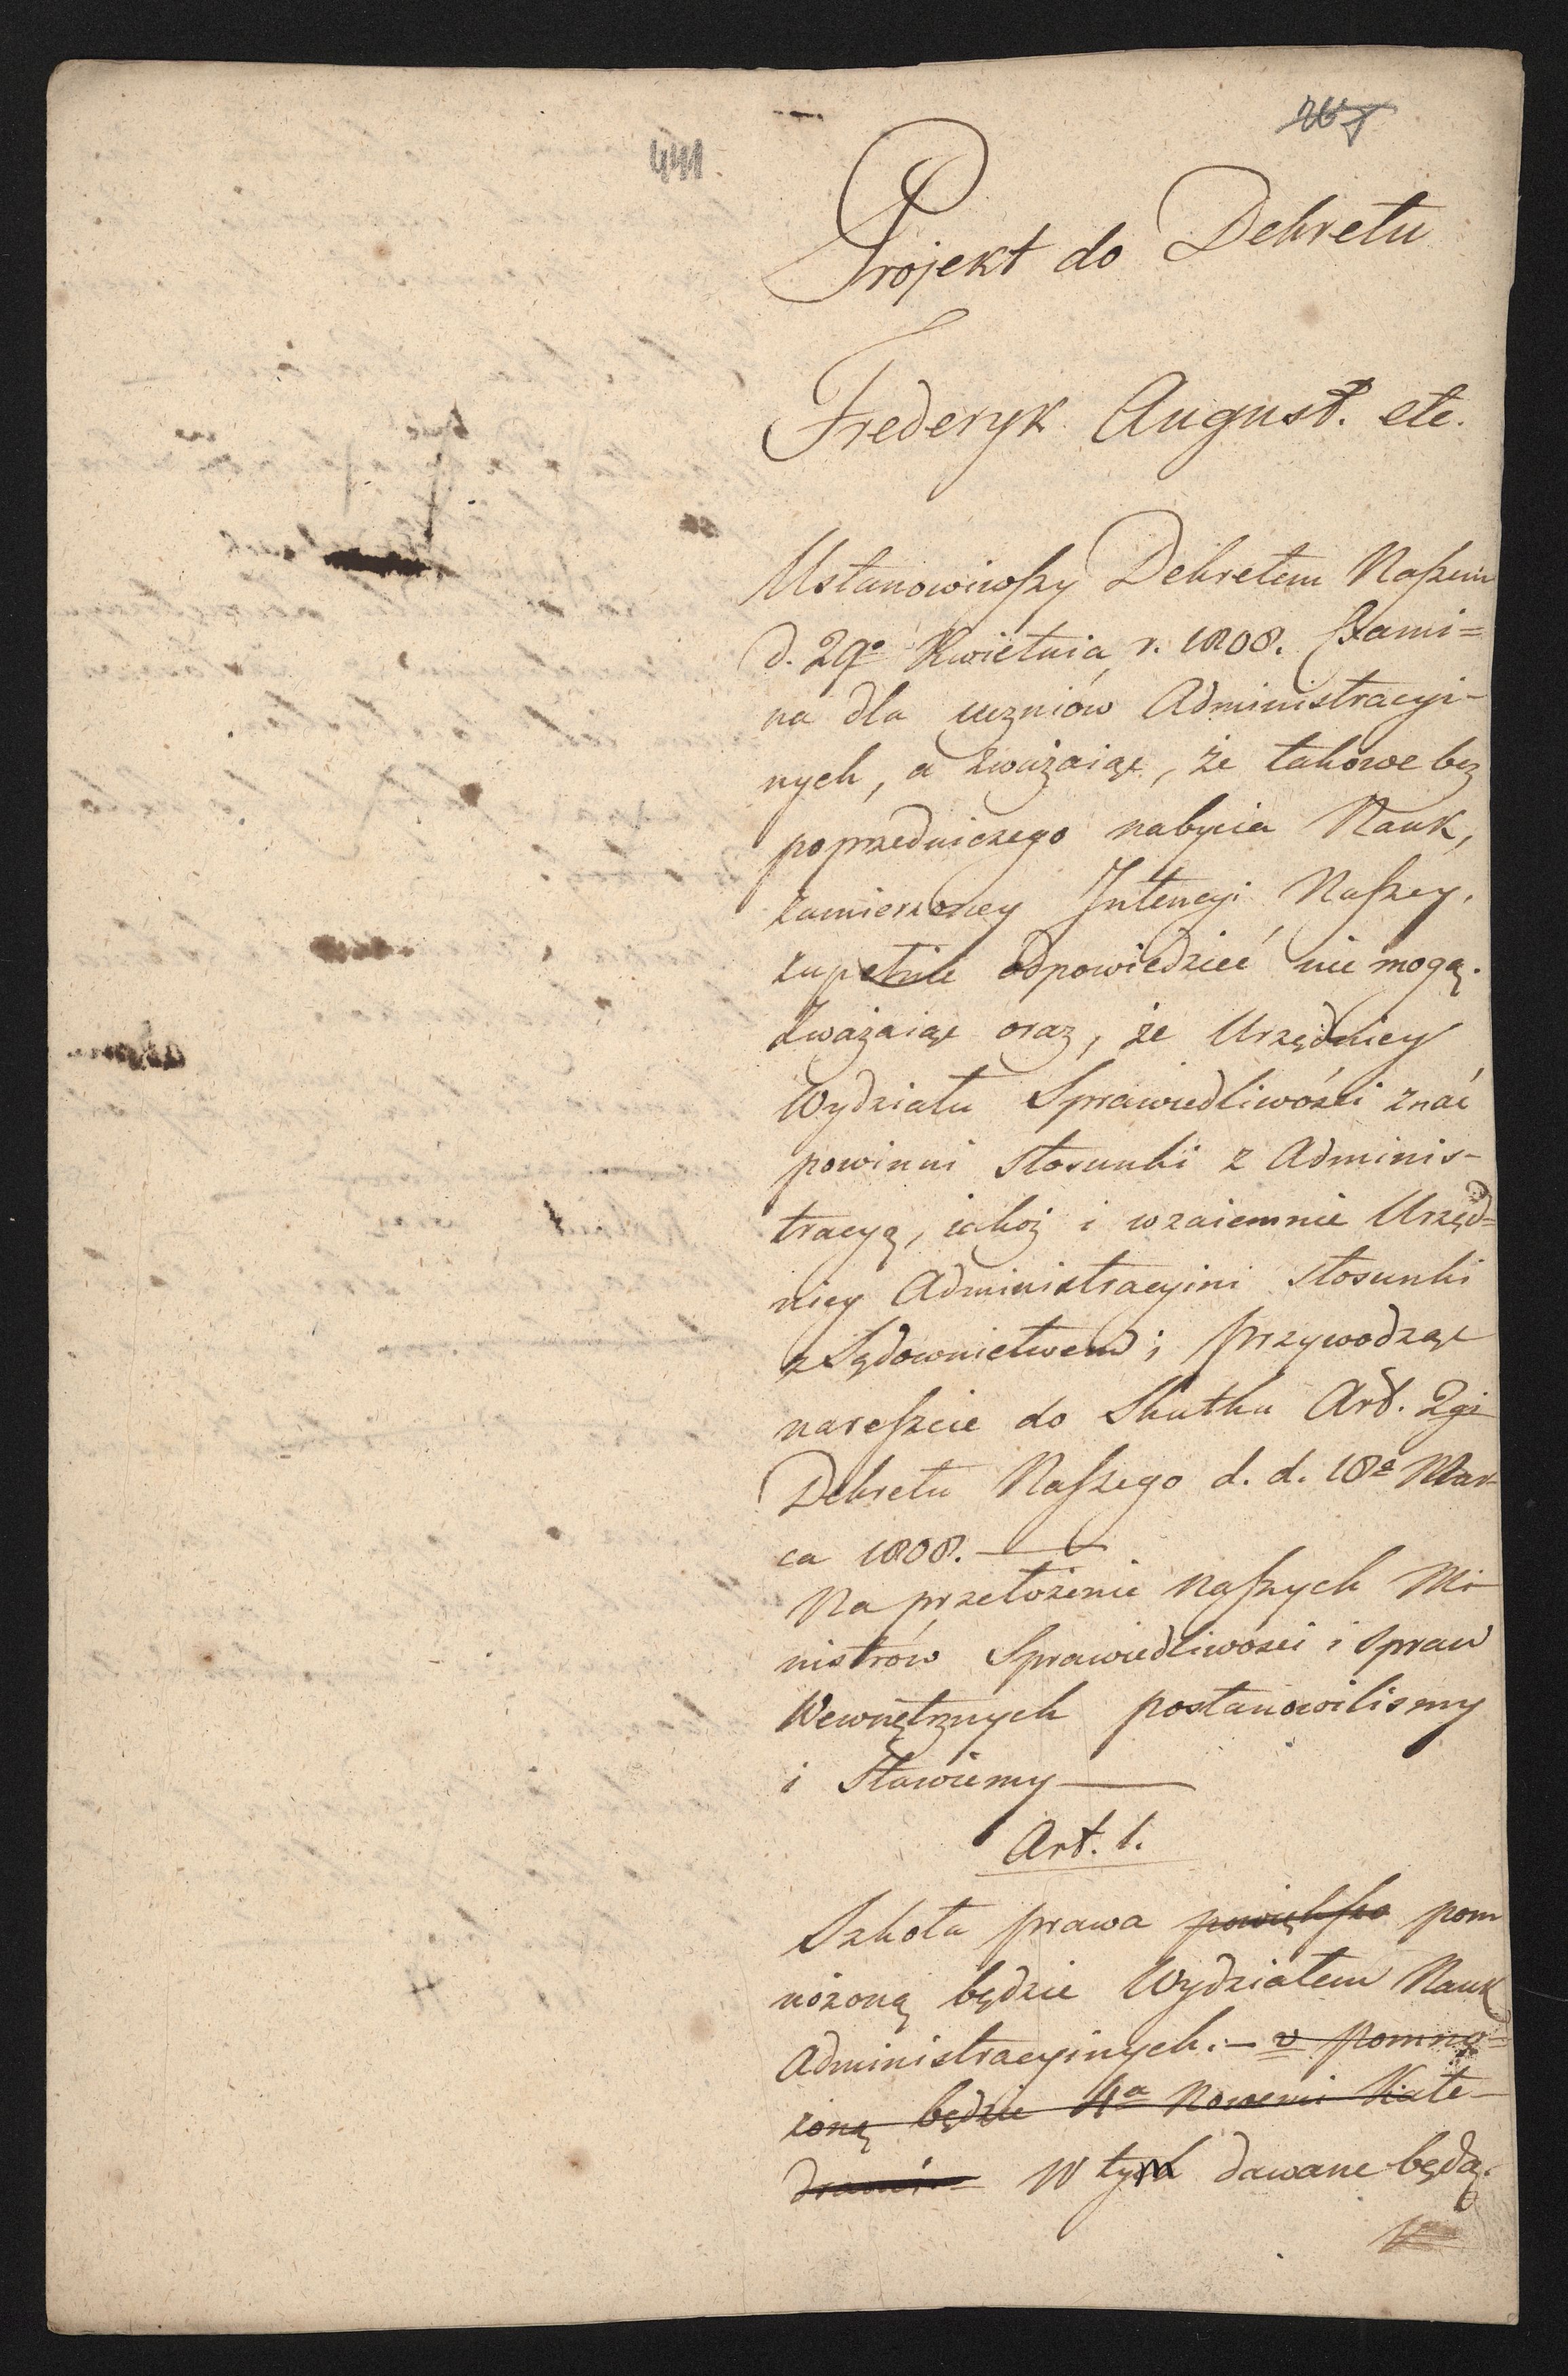 441.
267
Projekt do Dekretu
Frederyk August. etc.
Ustanowiwszy Dekretem Naszem
d. 29º Kwietnia r. 1808. Exami=
na dla uczniów Administracyi-
nych, a zważaiąc, że takowe bez
poprzedniczego nabycia Nauk,
zamierzoney Intencyi Naszey,
zupełnie odpowiedzieć nie mogą.
Zważaiąc oraz, że Urzędnicy
Wydziału Sprawiedliwości znać
powinni stosunki z Adminis-
tracyą, iakoż i wzaiemnie Urzęd=
nicy Administracyini stosunki
z Sądownictwem; przywodząc
nareszcie do Skutku Art. 2gi
Dekretu Naszego d. d. 18º Mar-
ca 1808.
Na przełożenie naszych Mi-
nistrów Sprawiedliwości i spraw
Wewnętrznych postanowilismy
i Stawiemy
Art. 1.
Szkoła prawa powiększo pom
nożoną będzie Wydziałem Nauk
Administracyinych. – v pomno=
żoną będzie 4ª Nowemi Kate-
drami W tym dawane będą.